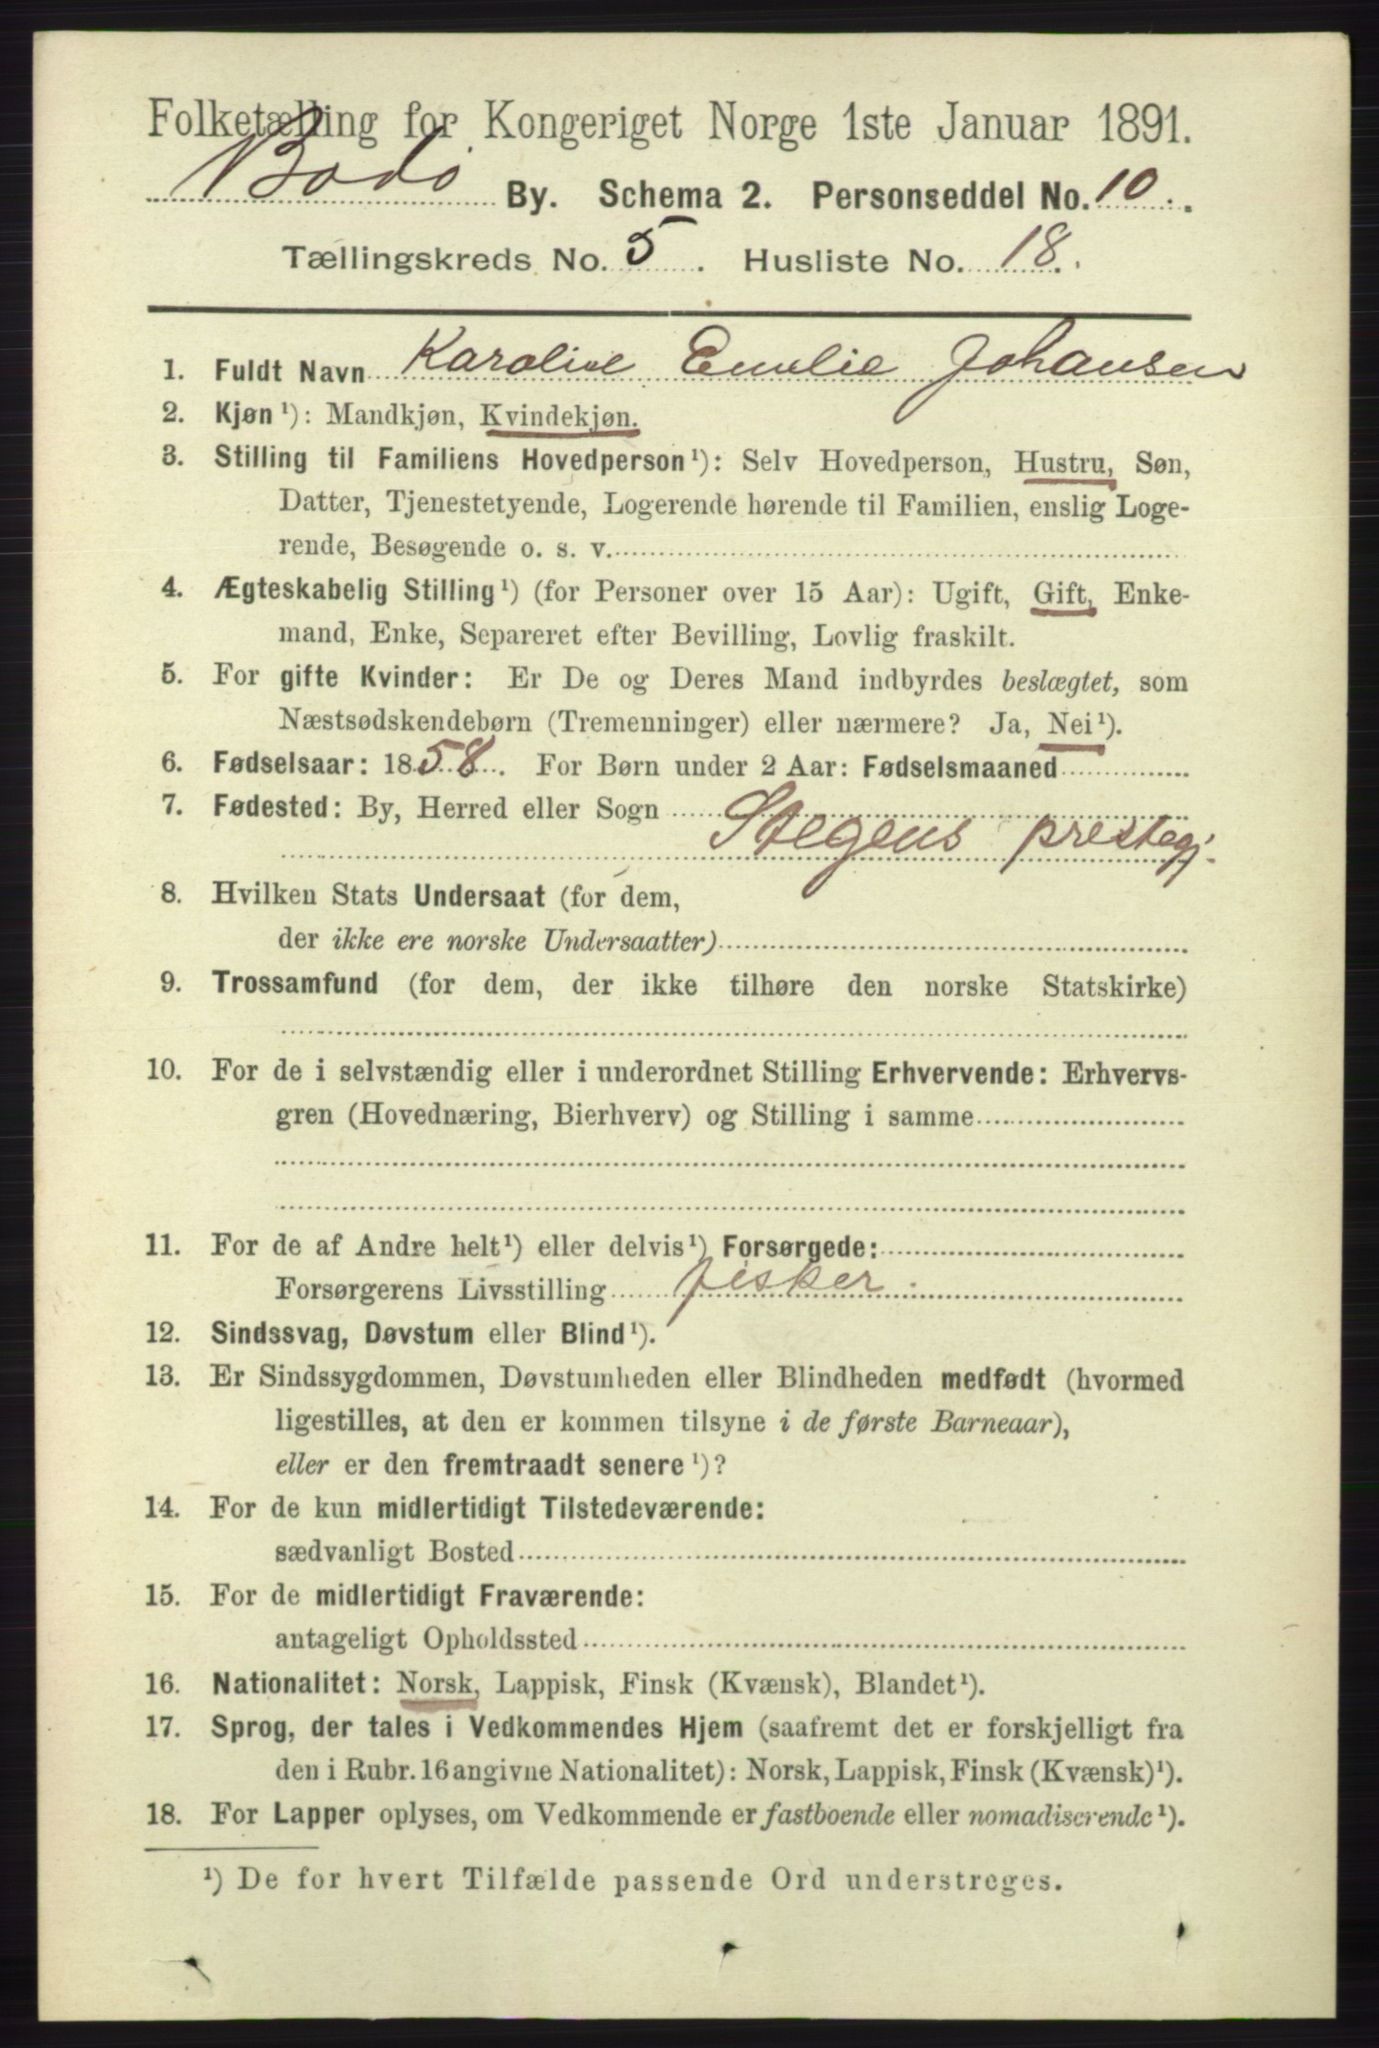 Folketælling for Kongeriget Norge 1ste Januar 1891.
Bodö By. Schema 2. Personseddel No. 10.
Tællingskreds No. 5. Husliste No. 18.
1. Fuldt Navn Karoline Emelie Johansen
2. Kjøn¹): Mandkjøn, Kvindekjøn.
3. Stilling til Familiens Hovedperson¹): Selv Hovedperson, Hustru, Søn,
Datter, Tjenestetyende, Logerende hørende til Familien, enslig Loge-
rende, Besøgende o. s. v.
4. Ægteskabelig Stilling¹) (for Personer over 15 Aar): Ugift, Gift, Enke-
mand, Enke, Separeret efter Bevilling, Lovlig fraskilt.
5. For gifte Kvinder: Er De og Deres Mand indbyrdes beslægtet, som
Næstsødskendebørn (Tremenninger) eller nærmere? Ja, Nei¹).
6. Fødselsaar: 1858. For Børn under 2 Aar: Fødselsmaaned
7. Fødested: By, Herred eller Sogn
Stegens prestegj.
8. Hvilken Stats Undersaat (for dem,
der ikke ere norske Undersaatter)
9. Trossamfund (for dem, der ikke tilhøre den norske Statskirke)
10. For de i selvstændig eller i underordnet Stilling Erhvervende: Erhvervs-
gren (Hovednæring, Bierhverv) og Stilling i samme
11. For de af Andre helt¹) eller delvis¹) Forsørgede:
Forsørgerens Livsstilling fisker.
12. Sindssvag, Døvstum eller Blind¹).
13. Er Sindssygdommen, Døvstumheden eller Blindheden medfødt (hvormed
ligestilles, at den er kommen tilsyne i de første Barneaar),
eller er den fremtraadt senere¹)?
14. For de kun midlertidigt Tilstedeværende:
sædvanligt Bosted
15. For de midlertidigt Fraværende:
antageligt Opholdssted
16. Nationalitet: Norsk, Lappisk, Finsk (Kvænsk), Blandet¹).
17. Sprog, der tales i Vedkommendes Hjem (saafremt det er forskjelligt fra
den i Rubr. 16 angivne Nationalitet): Norsk, Lappisk, Finsk (Kvænsk)¹).
18. For Lapper oplyses, om Vedkommende er fastboende eller nomadiserende¹).
¹) De for hvert Tilfælde passende Ord understreges.